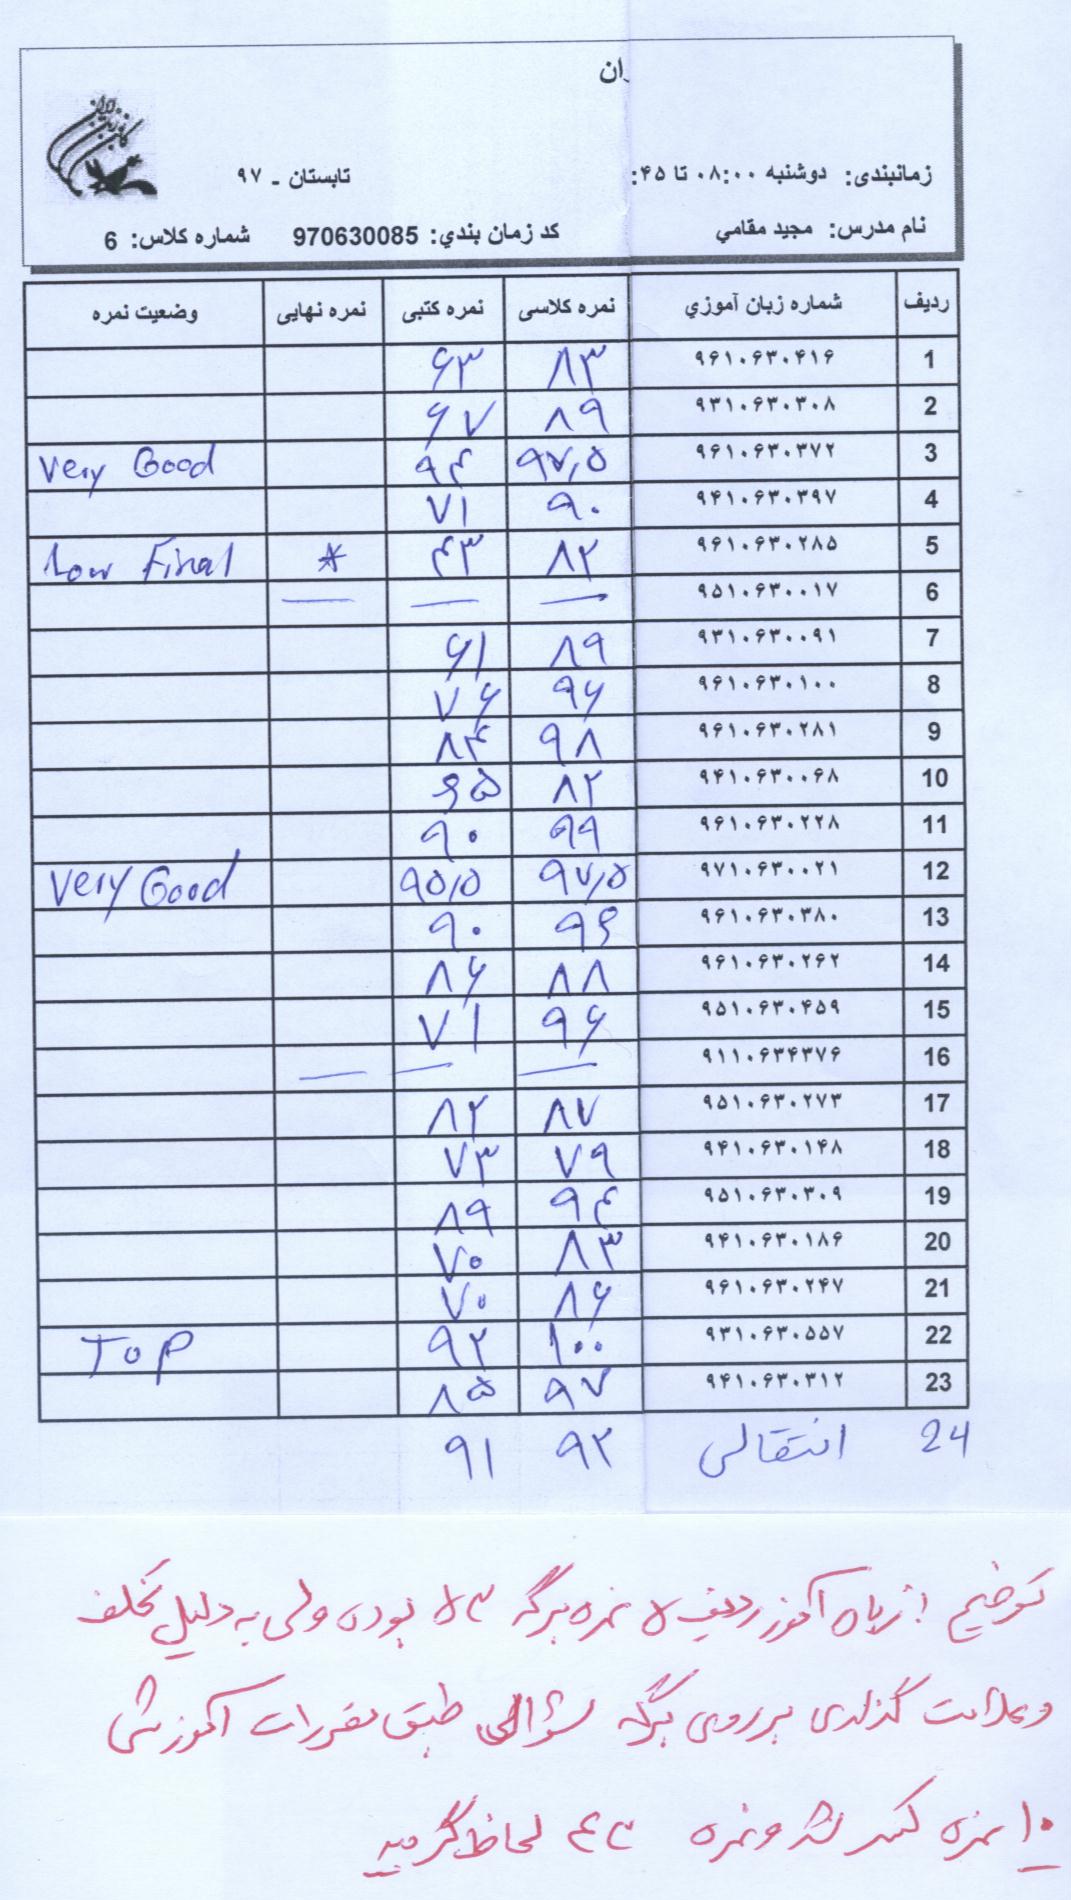 ران
کانون زبان ایران
زمانبندی: دوشنبه ۰۸:۰۰ تا ۴۵: تابستان - ۹۷
نام مدرس: مجید مقامي کد زمان بندي: 970630085 شماره کلاس: 6
ردیف شماره زبان آموزي نمره کلاسی نمره کتبی نمره نهایی وضعیت نمره
1 ۹۶۱۰۶۳۰۴۱۶ ۸۳ ۶۳
2 ۹۳۱۰۶۳۰۳۰۸ ۸۹ ۶۷
3 ۹۶۱۰۶۳۰۳۷۲ ۹۷,۵ ۹۴ Very Good
4 ۹۴۱۰۶۳۰۳۹۷ ۹۰ ۷۱
5 ۹۶۱۰۶۳۰۲۸۵ ۸۲ ۴۳ * Low Final
6 ۹۵۱۰۶۳۰۰۱۷ — — —
7 ۹۳۱۰۶۳۰۰۹۱ ۸۹ ۶۱
8 ۹۶۱۰۶۳۰۱۰۰ ۹۶ ۷۶
9 ۹۶۱۰۶۳۰۲۸۱ ۹۸ ۸۴
10 ۹۴۱۰۶۳۰۰۶۸ ۸۲ ۶۵
11 ۹۶۱۰۶۳۰۲۲۸ ۹۹ ۹۰
12 ۹۷۱۰۶۳۰۰۲۱ ۹۷,۵ ۹۵,۵ Very Good
13 ۹۶۱۰۶۳۰۳۸۰ ۹۶ ۹۰
14 ۹۶۱۰۶۳۰۲۶۲ ۸۸ ۸۶
15 ۹۵۱۰۶۳۰۴۵۹ ۹۶ ۷۱
16 ۹۱۱۰۶۳۴۳۷۶ — — —
17 ۹۵۱۰۶۳۰۲۷۳ ۸۷ ۸۲
18 ۹۴۱۰۶۳۰۱۴۸ ۷۹ ۷۳
19 ۹۵۱۰۶۳۰۳۰۹ ۹۴ ۸۹
20 ۹۴۱۰۶۳۰۱۸۶ ۸۳ ۷۰
21 ۹۶۱۰۶۳۰۲۴۷ ۸۶ ۷۰
22 ۹۳۱۰۶۳۰۵۵۷ ۱۰۰ ۹۲ TOP
23 ۹۴۱۰۶۳۰۳۱۲ ۹۷ ۸۵
24 انتقالی ۹۲ ۹۱
توضیح : زبان آموز ردیف ۵ نمره برگه ۵۳ بوده ولی به دلیل تخلف
و علامت گذاری بر روی برگه سؤالی طبق مقررات آموزشی
۱۰ نمره کسر شد و نمره ۴۳ لحاظ گردید